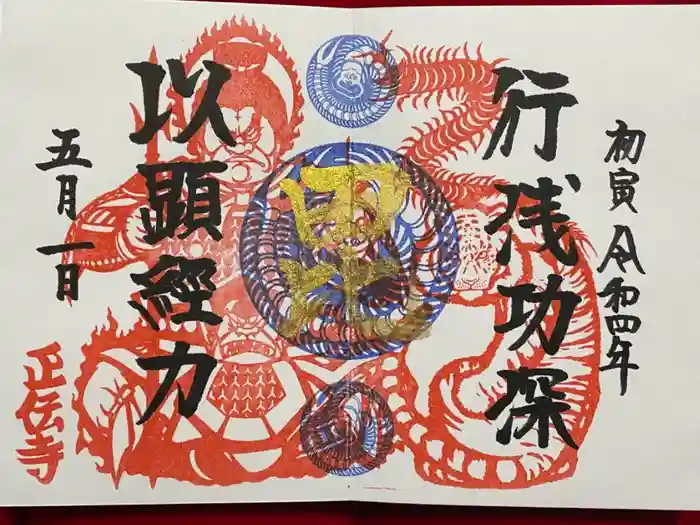 初寅 令和四年
行残功深
以顕經力
五月一日
正伝寺